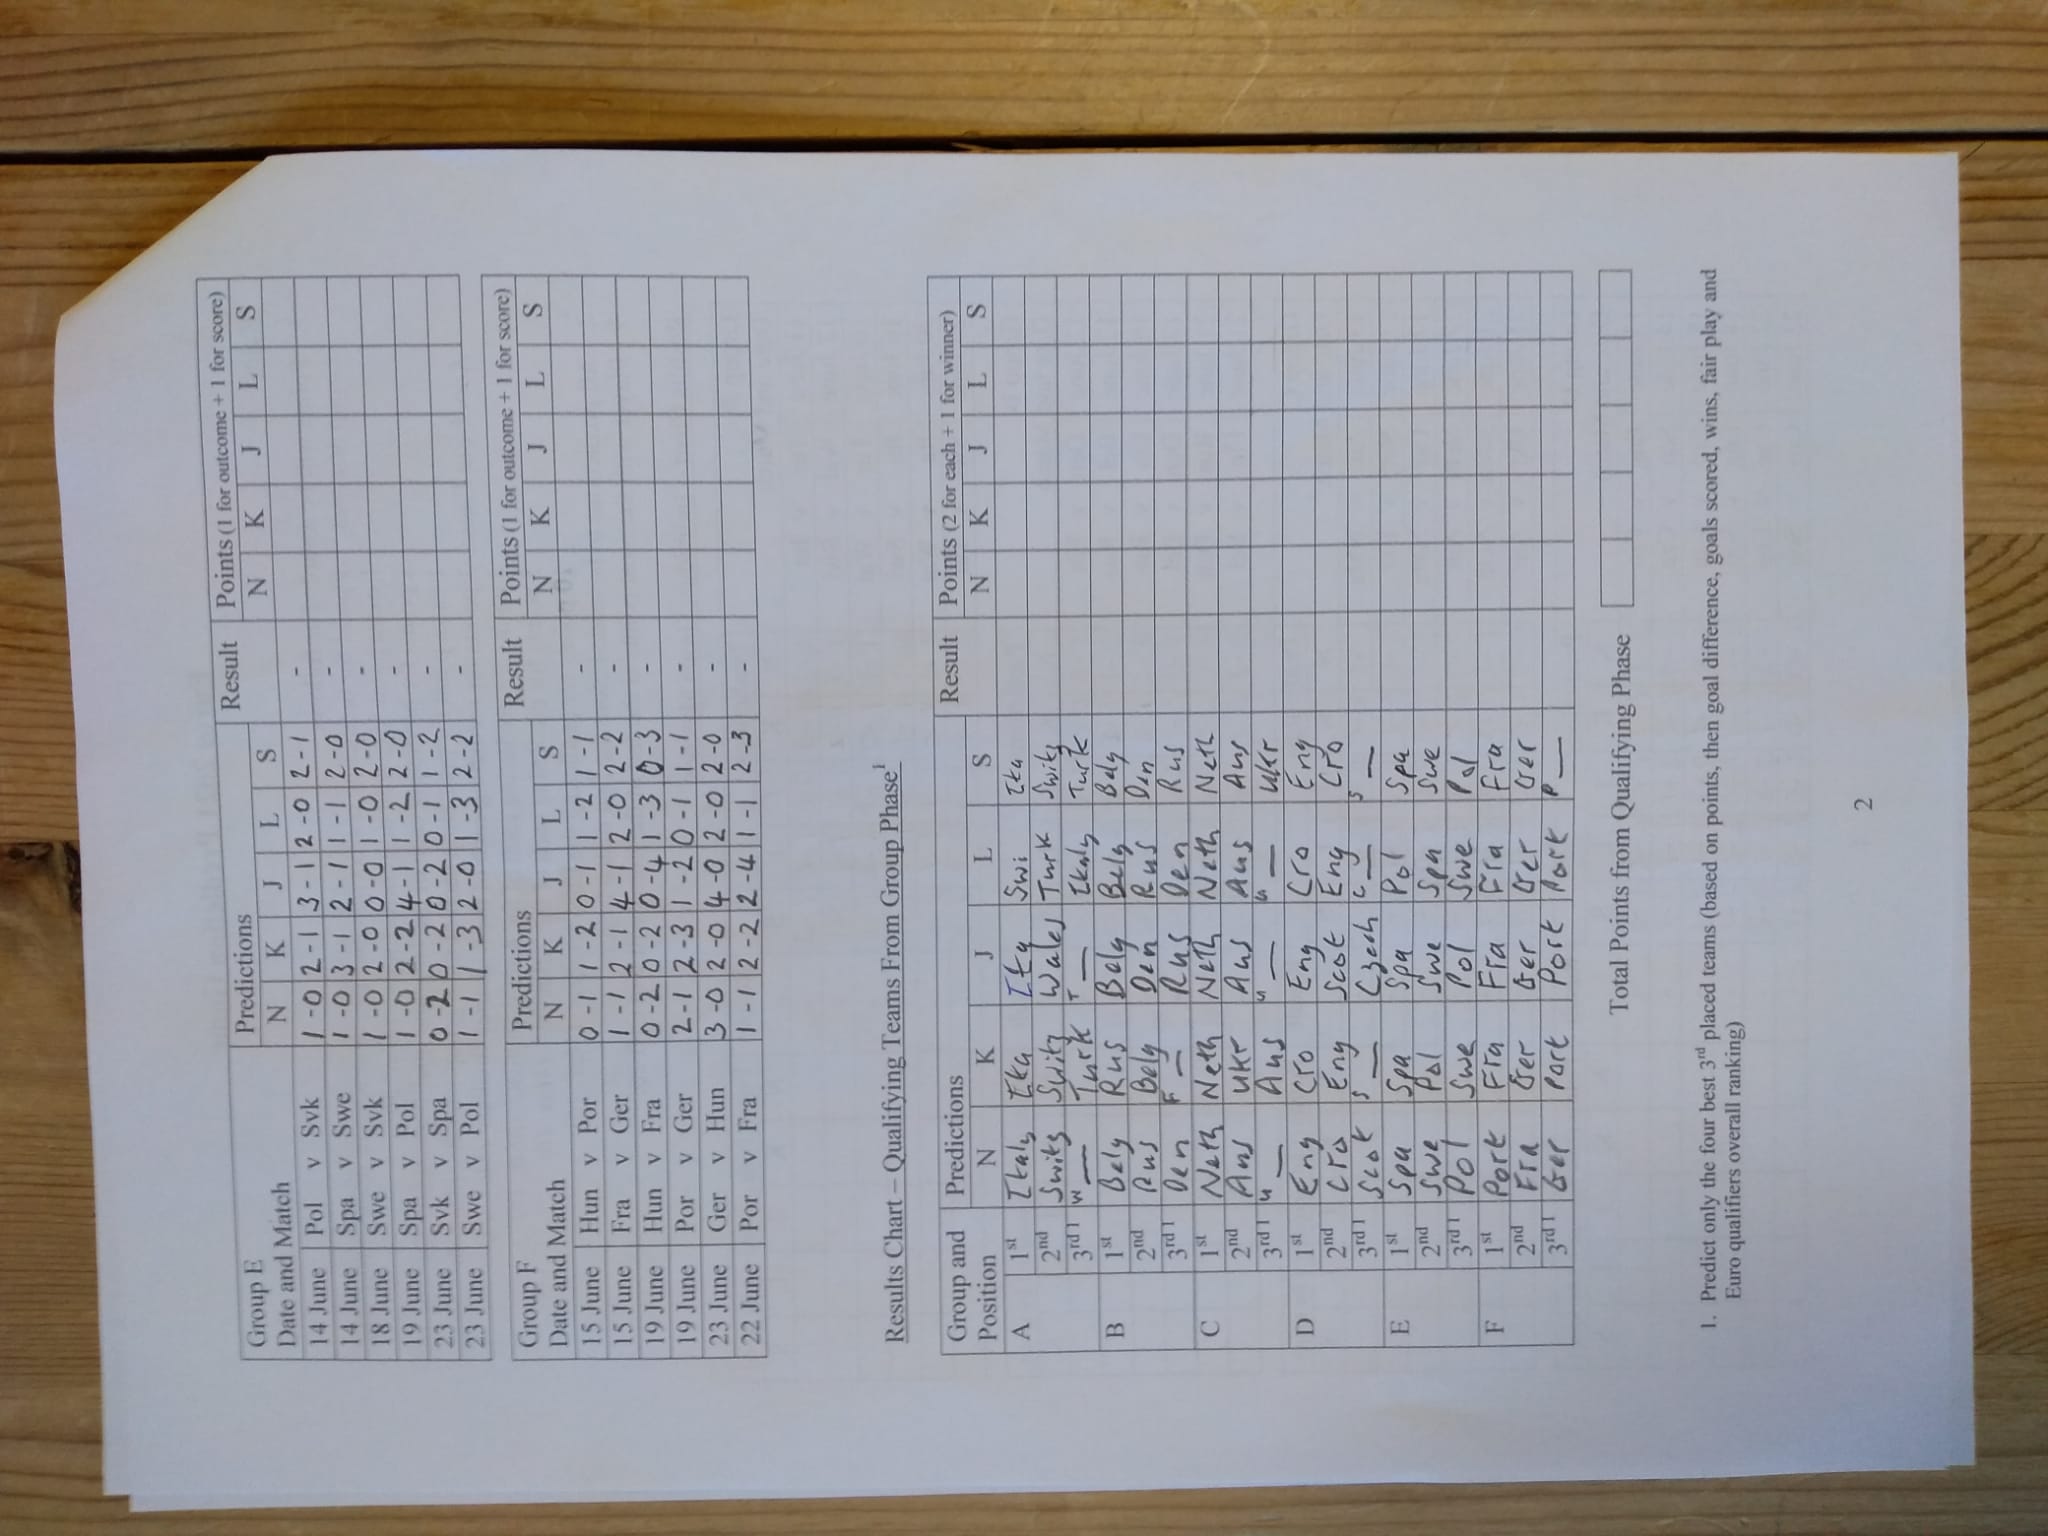 Group E Predictions Result Points (1 for outcome + 1 for score)
Date and Match N K J L S N K J L S
14 June Pol v Svk 1-0 2-1 3-1 2-0 2-1 -
14 June Spa v Swe 1-0 3-1 2-1 1-1 2-0 -
18 June Swe v Svk 1-0 2-0 0-0 1-0 2-0 -
19 June Spa v Pol 1-0 2-2 4-1 1-2 2-0 -
23 June Svk v Spa 0-2 0-2 0-2 0-1 1-2 -
23 June Swe v Pol 1-1 1-3 2-0 1-3 2-2 -
Group F Predictions Result Points (1 for outcome + 1 for score)
Date and Match N K J L S N K J L S
15 June Hun v Por 0-1 1-2 0-1 1-2 1-1 -
15 June Fra v Ger 1-1 2-1 4-1 2-0 2-2 -
19 June Hun v Fra 0-2 0-2 0-4 1-3 0-3 -
19 June Por v Ger 2-1 2-3 1-2 0-1 1-1 -
23 June Ger v Hun 3-0 2-0 4-0 2-0 2-0 -
22 June Por v Fra 1-1 2-2 2-4 1-1 2-3 -
Results Chart – Qualifying Teams From Group Phase1
Group and Predictions Result Points (2 for each + 1 for winner)
Position N K J L S N K J L S
A 1st Italy Ita Ity Swi Ita
2nd Switz Switz Wales Turk Switz
3rd 1 W — Turk T — Italy Turk
B 1st Belg Rus Belg Belg Belg
2nd Rus Belg Den Rus Den
3rd 1 Den F — Rus Den Rus
C 1st Neth Neth Neth Neth Neth
2nd Aus Ukr Aus Aus Aus
3rd 1 u — Aus u — u — Ukr
D 1st Eng Cro Eng Cro Eng
2nd Cro Eng Scot Eng Cro
3rd 1 Scot S — Czech C — S —
E 1st Spa Spa Spa Pol Spa
2nd Swe Pol Swe Spa Swe
3rd 1 Pol Swe Pol Swe Pol
F 1st Port Fra Fra Fra Fra
2nd Fra Ger Ger Ger Ger
3rd 1 Ger Port Port Port P —
Total Points from Qualifying Phase
1. Predict only the four best 3rd placed teams (based on points, then goal difference, goals scored, wins, fair play and
Euro qualifiers overall ranking)
2